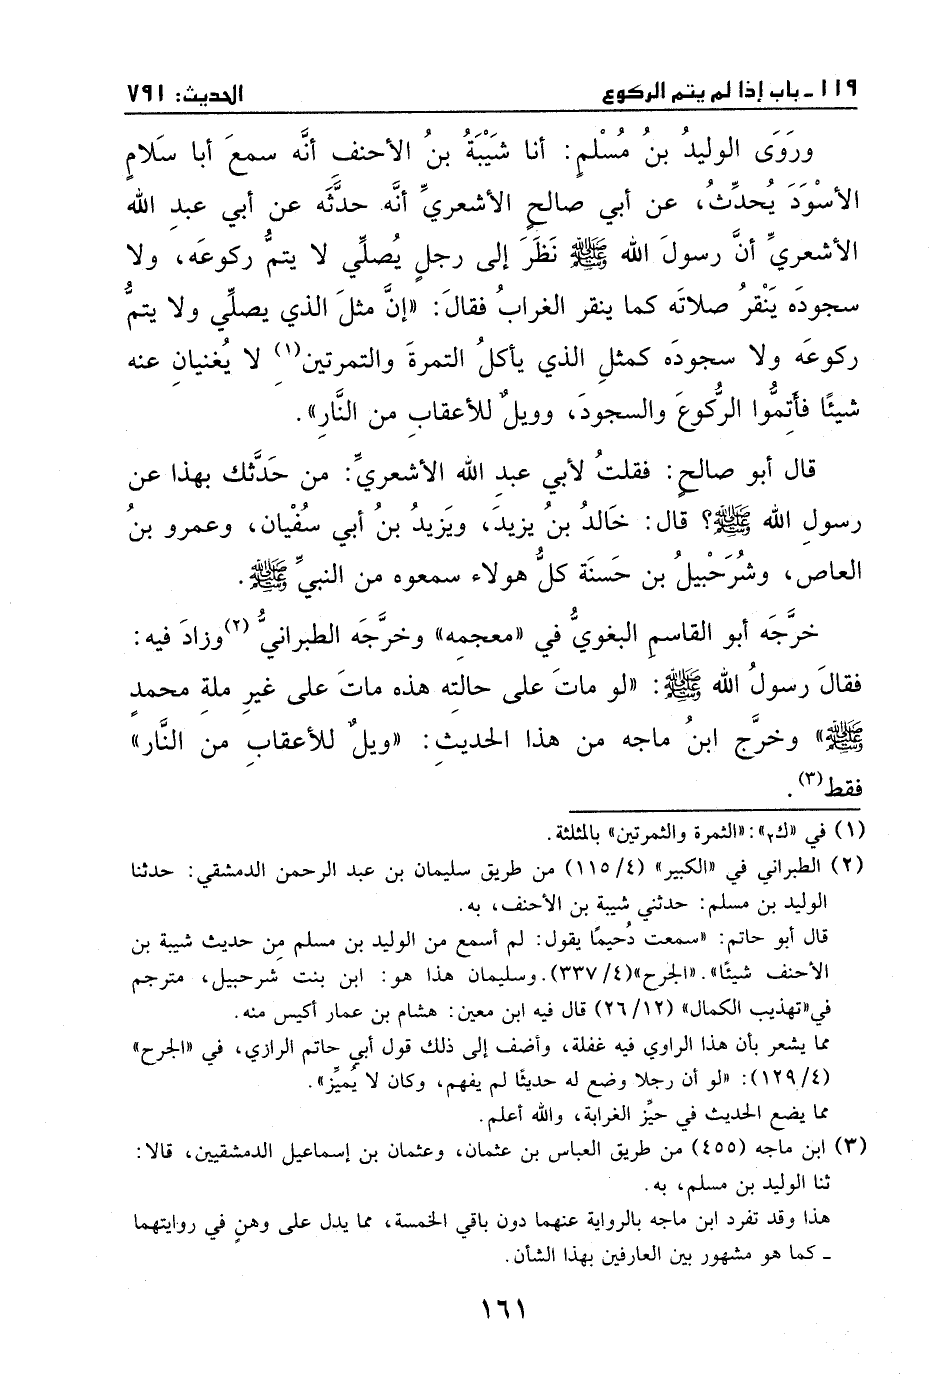 ١١٩ ـ باب إذا لم يتم الركوع الحديث: ٧٩١
وروَى الوليدُ بنُ مُسْلمٍ: أنا شَيْبَةُ بنُ الأحنفِ أنَّه سمعَ أبا سَلامٍ
الأسْوَدَ يُحدِّثُ، عن أبي صالحٍ الأشعريِّ أنَّه حدثَّه عن أبي عبدِ الله
الأشعريِّ أنَّ رسولَ الله ﷺ نَظَرَ إلى رجلٍ يُصلِّي لا يتمُّ ركوعَه، ولا
سجودَه يَنْقرُ صلاتَه كما ينقر الغرابُ فقالَ: «إنَّ مثلَ الذي يصلِّي ولا يتمُّ
ركوعَه ولا سجودَه كمثلِ الذي يأكلُ التمرةَ والتمرتينِ(١) لا يُغنيانِ عنه
شيئًا فأَتمُّوا الرُّكوعَ والسجودَ، وويلٌ للأعقابِ من النَّارِ».
قال أبو صالحٍ: فقلتُ لأبي عبدِ الله الأشعريِّ: من حَدَّثك بهذا عن
رسولِ الله ﷺ؟ قال: خَالدُ بنُ يزيدَ، ويَزيدُ بنُ أبي سُفْيان، وعمرو بنُ
العاص، وشُرَحْبيلُ بن حَسنَة كلُّ هولاء سمعوه من النبيِّ ﷺ.
خرَّجَه أبو القاسمِ البغويُّ في «معجمِه» وخرَّجَه الطبرانيُّ(٢) وزادَ فيه:
فقالَ رسولُ الله ﷺ: «لو ماتَ على حالتِه هذه ماتَ على غيرِ ملةِ محمدٍ
ﷺ» وخرَّج ابنُ ماجه من هذا الحديثِ: «ويلٌ للأعقابِ من النَّار»
فقط(٣).
(١) في «ك٢»: «الثمرة والثمرتين» بالمثلثة.
(٢) الطبراني في «الكبير» (٤/ ١١٥) من طريق سليمان بن عبد الرحمن الدمشقي: حدثنا
الوليد بن مسلم: حدثني شيبة بن الأحنف، به.
قال أبو حاتم: «سمعت دُحيمًا يقول: لم أسمع من الوليد بن مسلم من حديث شيبة بن
الأحنف شيئًا». «الجرح»(٤/ ٣٣٧). وسليمان هذا هو: ابن بنت شرحبيل، مترجم
في«تهذيب الكمال» (١٢/ ٢٦) قال فيه ابن معين: هشام بن عمار أكيس منه.
مما يشعر بأن هذا الراوي فيه غفلة، وأضف إلى ذلك قول أبي حاتم الرازي، في «الجرح»
(٤/ ١٢٩): «لو أن رجلا وضع له حديثًا لم يفهم، وكان لا يُميِّز».
مما يضع الحديث في حيِّز الغرابة، والله أعلم.
(٣) ابن ماجه (٤٥٥) من طريق العباس بن عثمان، وعثمان بن إسماعيل الدمشقيين، قالا:
ثنا الوليد بن مسلم، به.
هذا وقد تفرد ابن ماجه بالرواية عنهما دون باقي الخمسة، مما يدل على وهنٍ في روايتهما
ـ كما هو مشهور بين العارفين بهذا الشأن.
١٦١